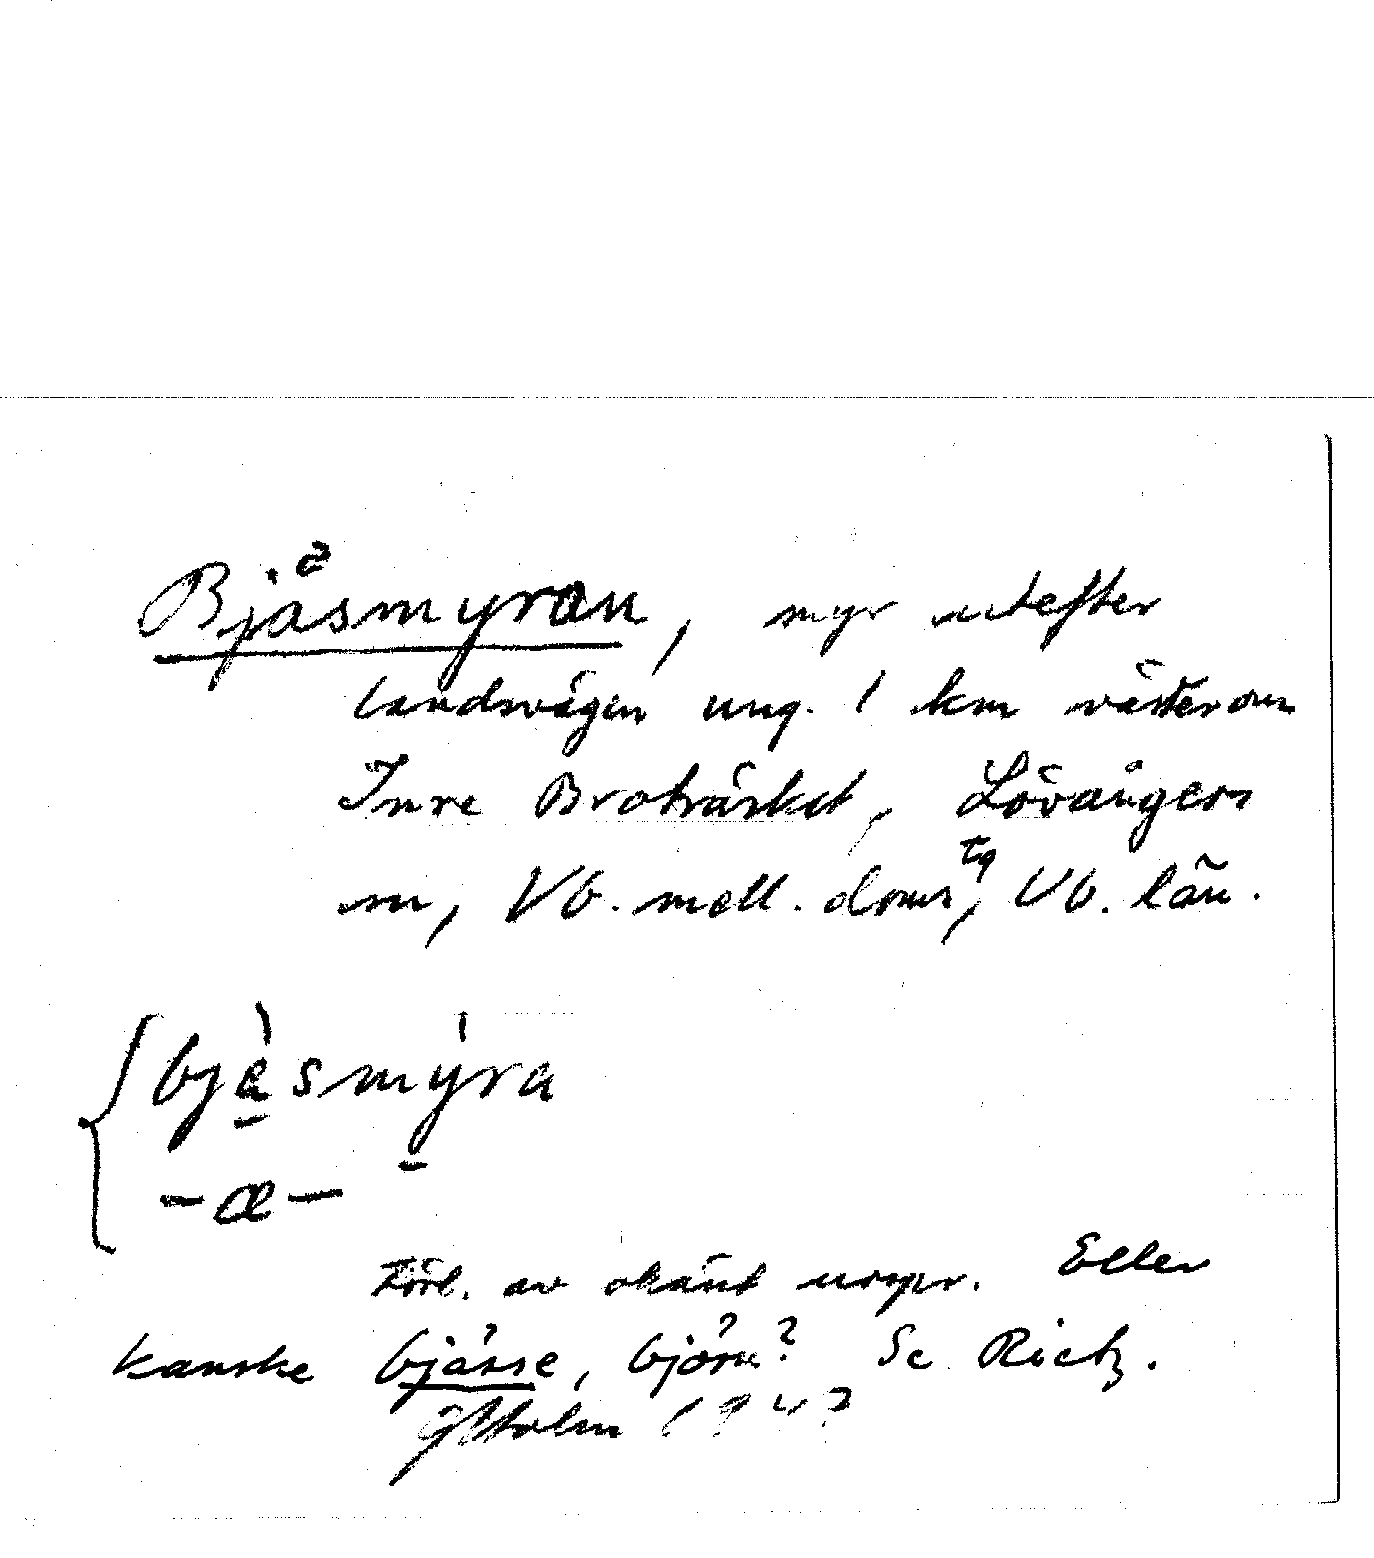 Bjåsmyran, myr utefter
landsvägen ung. 1 km västerom
Inre Broträsket, Lövångers
sn, Vb. mell. doms tg, Vb. län.
bjà̱smý̱ra
-æ-
Förl. av okänt urspr. Eller
kanske bjässe, björn? Se Rietz.
Holm 1942